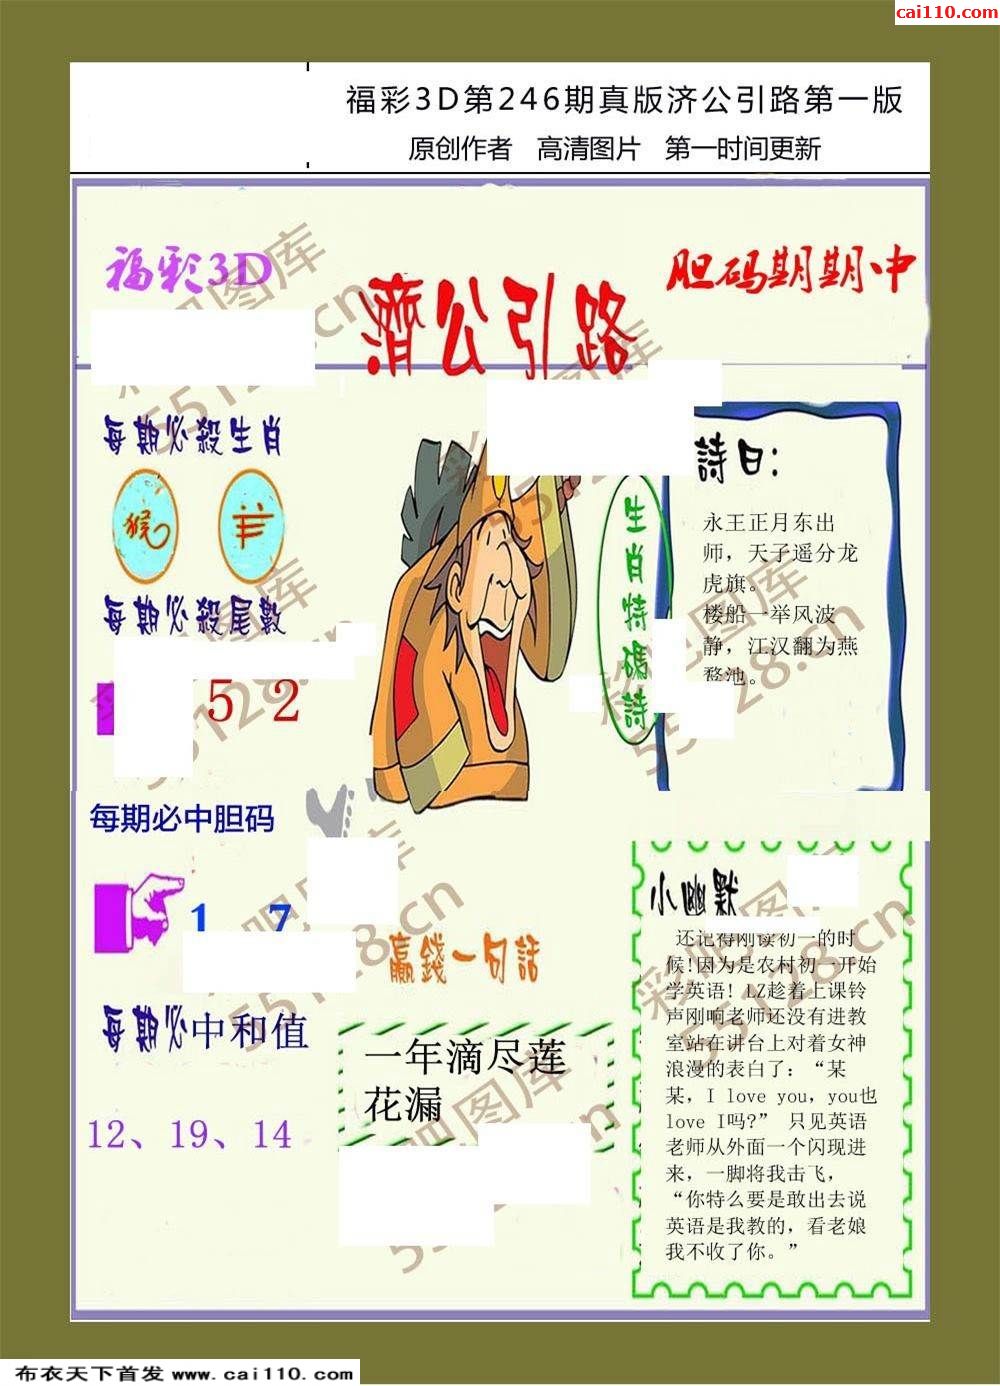 cai110.com
福彩3D第246期真版济公引路第一版
原创作者 高清图片 第一时间更新
福彩3D
濟公引路
胆码期期中
每期必殺生肖
猴 羊
每期必殺尾數
5 2
每期必中胆码
1 7
每期必中和值
12、19、14
生肖特碼詩
詩曰:
永王正月东出
师，天子遥分龙
虎旗。
楼船一举风波
静，江汉翻为燕
鹜池。
赢錢一句話
一年滴尽莲
花漏
小幽默
还记得刚读初一的时
候!因为是农村初一开始
学英语! LZ趁着上课铃
声刚响老师还没有进教
室站在讲台上对着女神
浪漫的表白了：“某
某，I love you，you也
love I吗?” 只见英语
老师从外面一个闪现进
来，一脚将我击飞，
“你特么要是敢出去说
英语是我教的，看老娘
我不收了你。”
彩吧图库
55128.cn
布衣天下首发 www.cai110.com